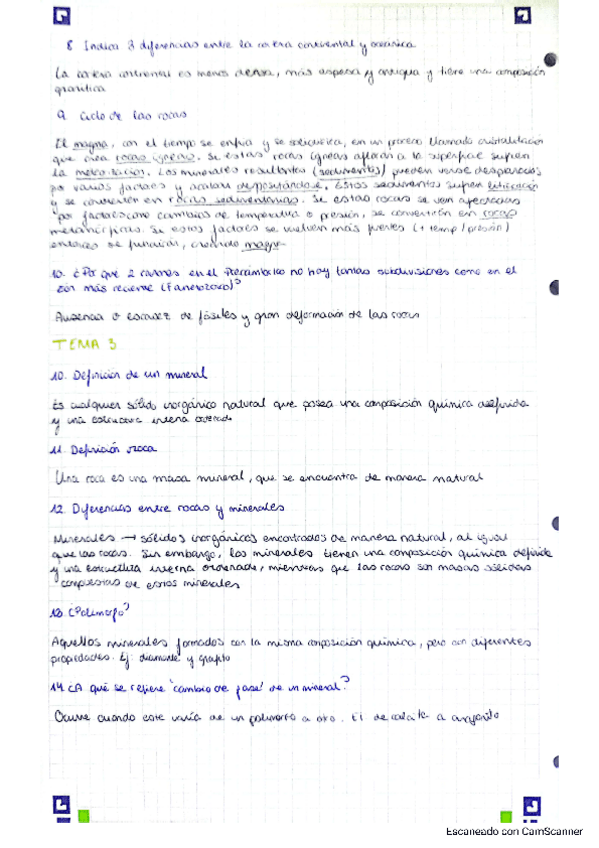 8. Indica 3 diferencias entre la corteza continental y oceánica
La corteza continental es menos densa, más espesa y antigua y tiene una composición
granítica
9. Ciclo de las rocas
El magma, con el tiempo se enfria y se solidifica, en un proceso llamado cristalización
que crea rocas ígneas. Si estas rocas ígneas afloran a la superficie sufren
la meteorización. Los minerales resultantes (sedimentos) pueden verse desplazados
por varios factores y acaban depositándose. Estos sedimentos sufren litificación
y se convierten en rocas sedimentarias. Si estas rocas se ven afectadas
por factores como cambios de temperatura o presión, se convertirán en rocas
metamórficas. Si estos factores se vuelven más fuertes (+ temp / presión)
entonces se fundirán, creando magma
10. ¿Por qué 2 razones en el Precámbrico no hay tantas subdivisiones como en el
eón más reciente (Fanerozoico)?
Ausencia o escasez de fósiles y gran deformación de las rocas
TEMA 3
10. Definición de un mineral
Es cualquier sólido inorgánico natural que posea una composición química definida
y una estructura interna ordenada
11. Definición roca
Una roca es una masa mineral, que se encuentra de manera natural
12. Diferencias entre rocas y minerales
Minerales → sólidos inorgánicos encontrados de manera natural, al igual
que las rocas. Sin embargo, los minerales tienen una composición química definida
y una estructura interna ordenada, mientras que las rocas son masas sólidas
compuestas de estos minerales
13. ¿Polimorfo?
Aquellos minerales formados con la misma composición química, pero con diferentes
propiedades. Ej: diamante y grafito
14. ¿A qué se refiere 'cambio de fase' de un mineral?
Ocurre cuando este varía de un polimorfo a otro. Ej de calcita a aragonito
Escaneado con CamScanner